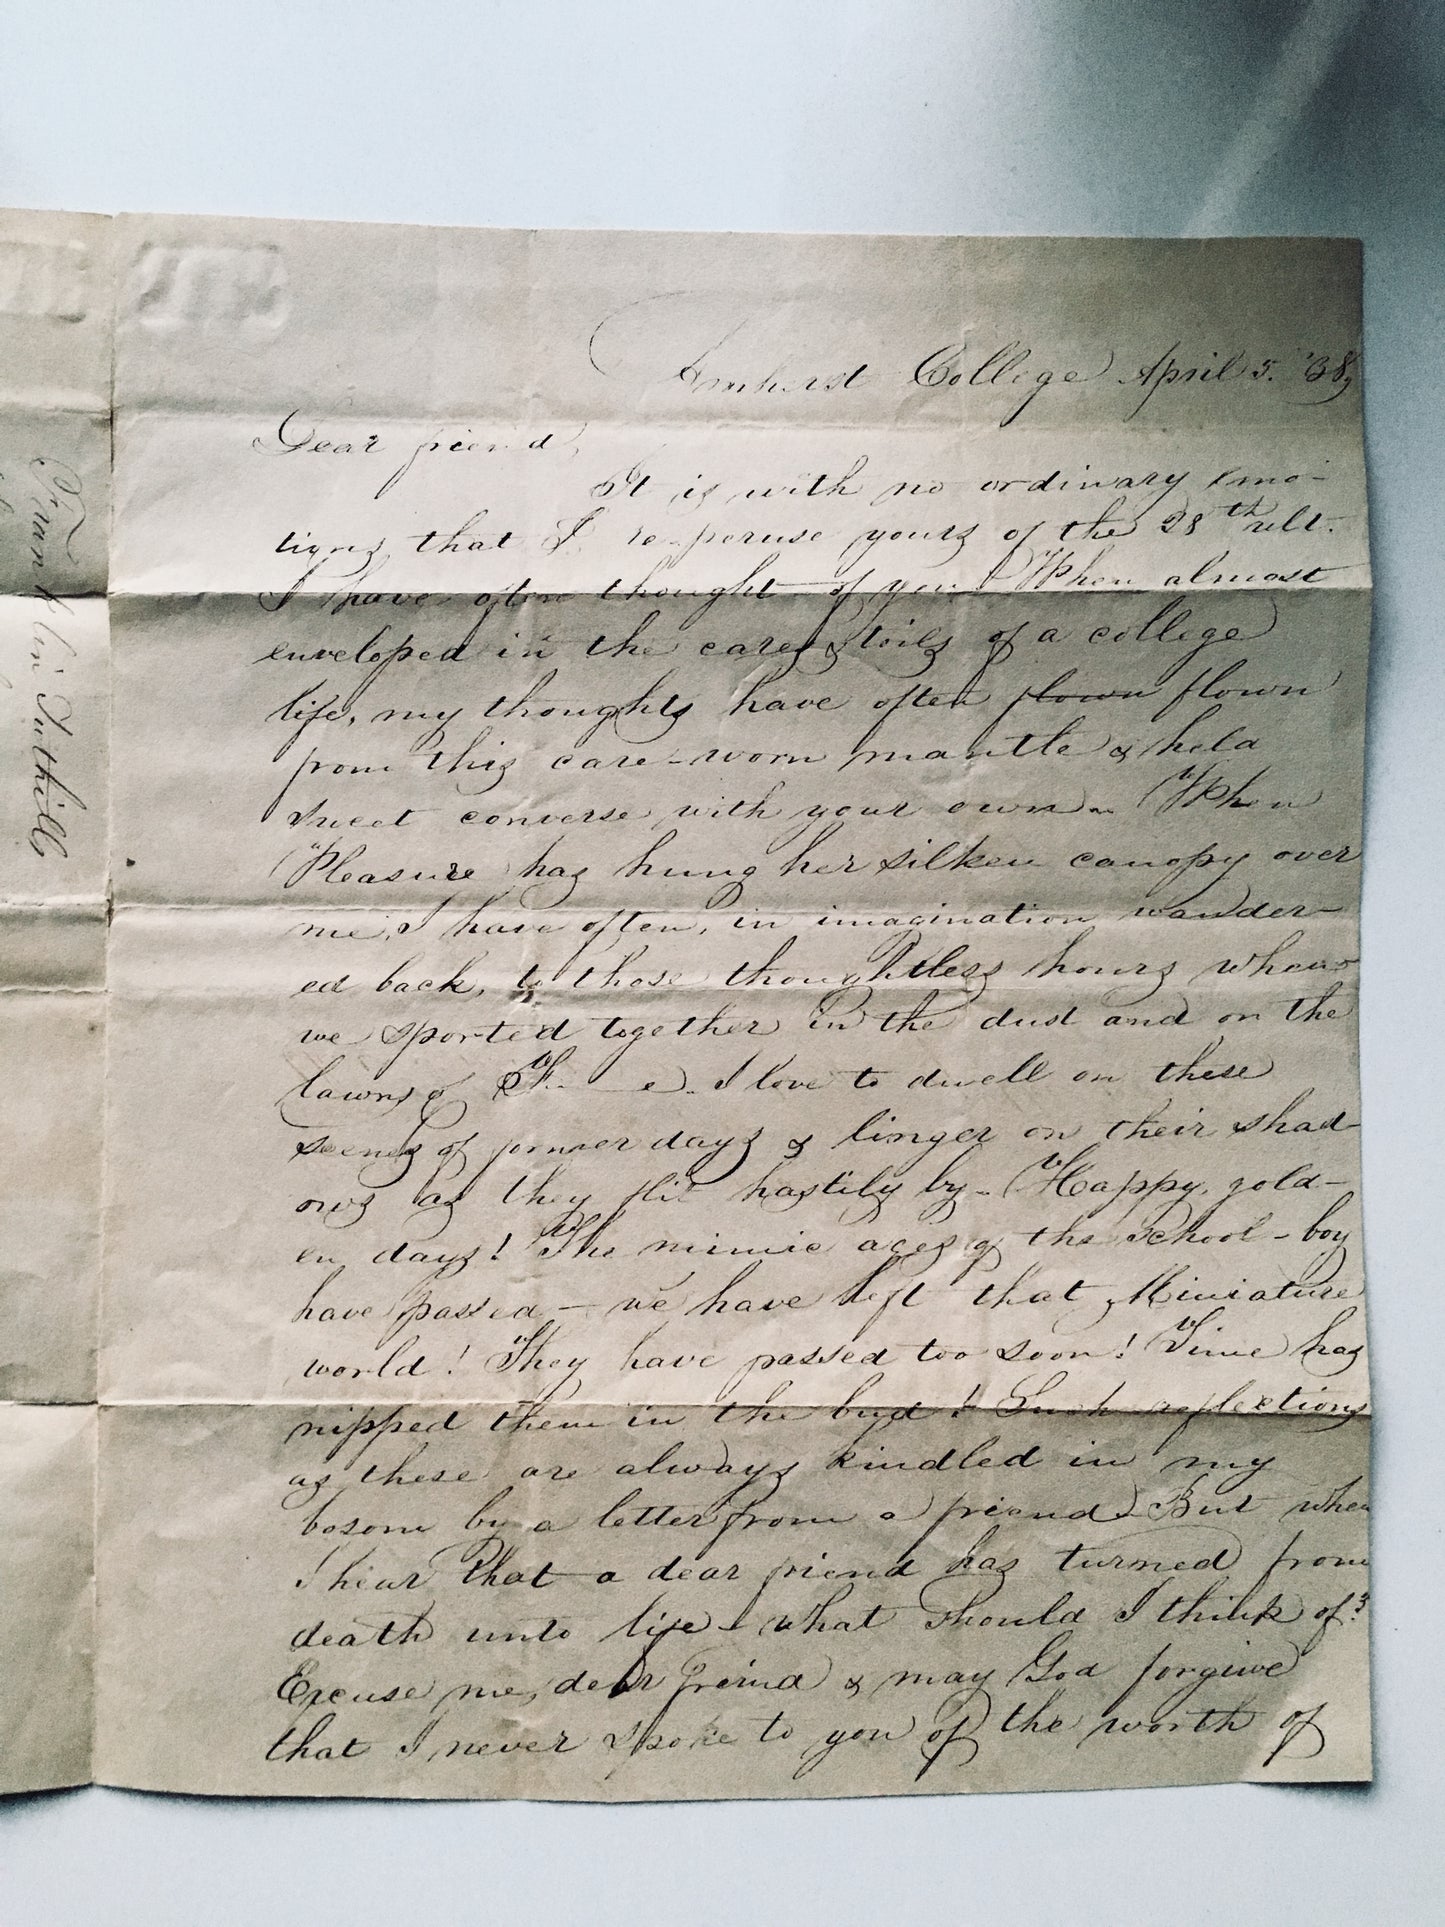 Amherst College April 5. '38,
Dear friend,
It is with no ordinary emo-
tions that I re-peruse yours of the 28th ult.
I have often thought of you! When almost
enveloped in the cares & toils of a college
life, my thoughts have often flown flown
from this care-worn mantle & held
sweet converse with your own - When
Pleasure has hung her silken canopy over
me, I have often, in imagination wander-
ed back, to those thoughtless hours when
we sported together in the dust and on the
lawns of F. e. I love to dwell on these
scenes of former days & linger on their shad-
ows as they flit hastily by - Happy, gold-
en days! The mimic ages of the School-boy
have passed - we have left that Miniature
world! They have passed too soon! Time has
nipped them in the bud! Such reflections
as these are always kindled in my
bosom by a letter from a friend - But when
I hear that a dear friend has turned from
death unto life - what should I think of?
Excuse me, dear friend & may God forgive
that I never spoke to you of the worth of
Tuthill